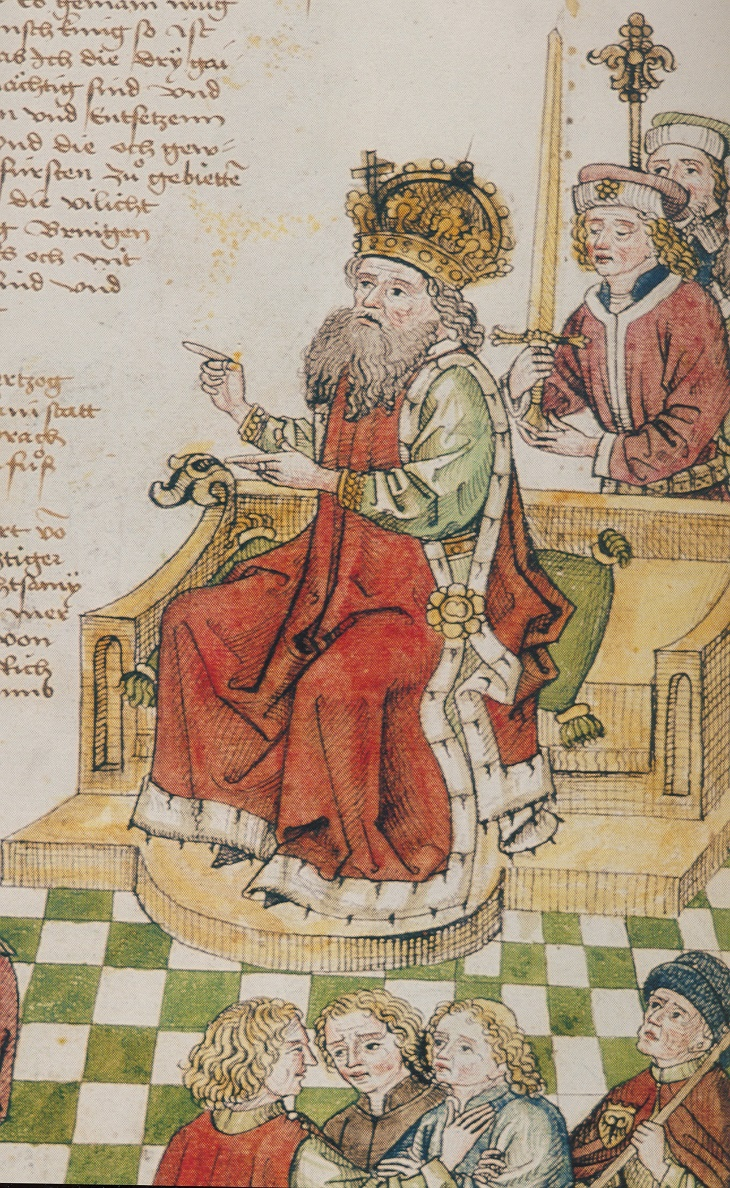 es gemain mug
nsch kung so ist
as Ich die dry gai
mächtig sind vnd
n vnd Entsetzenn
vnd die och gew-
fursten zů gebiettē
die vilicht
g Bringen
s och mit
sind vnd
ertzog
am statt
sprach
fůß
ert vō
htiger
chtsamy
wer
von
lich